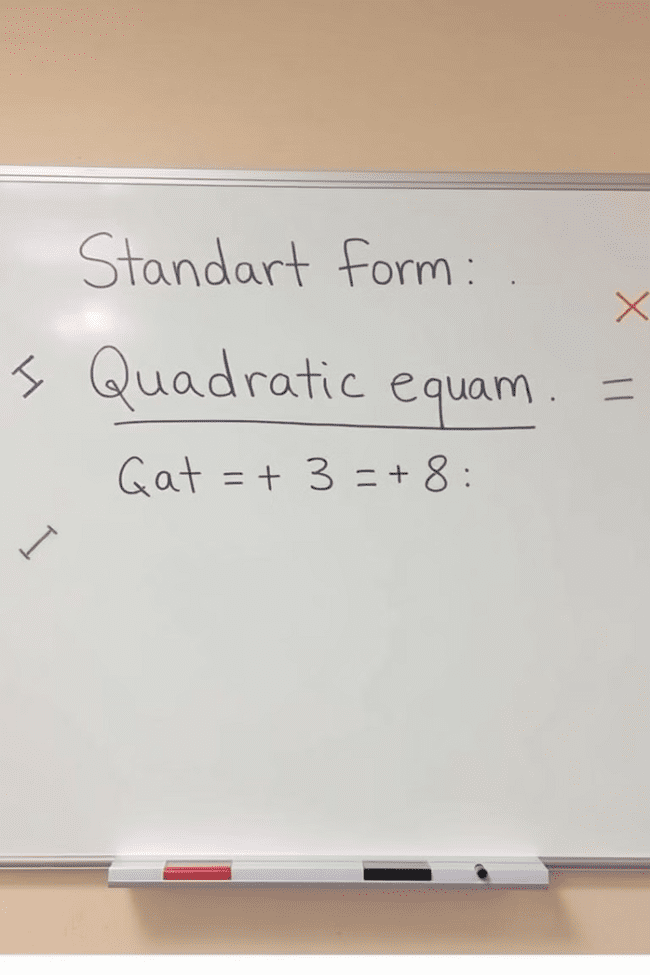 Standart form: .
Quadratic equam. =
Gat = + 3 = + 8: